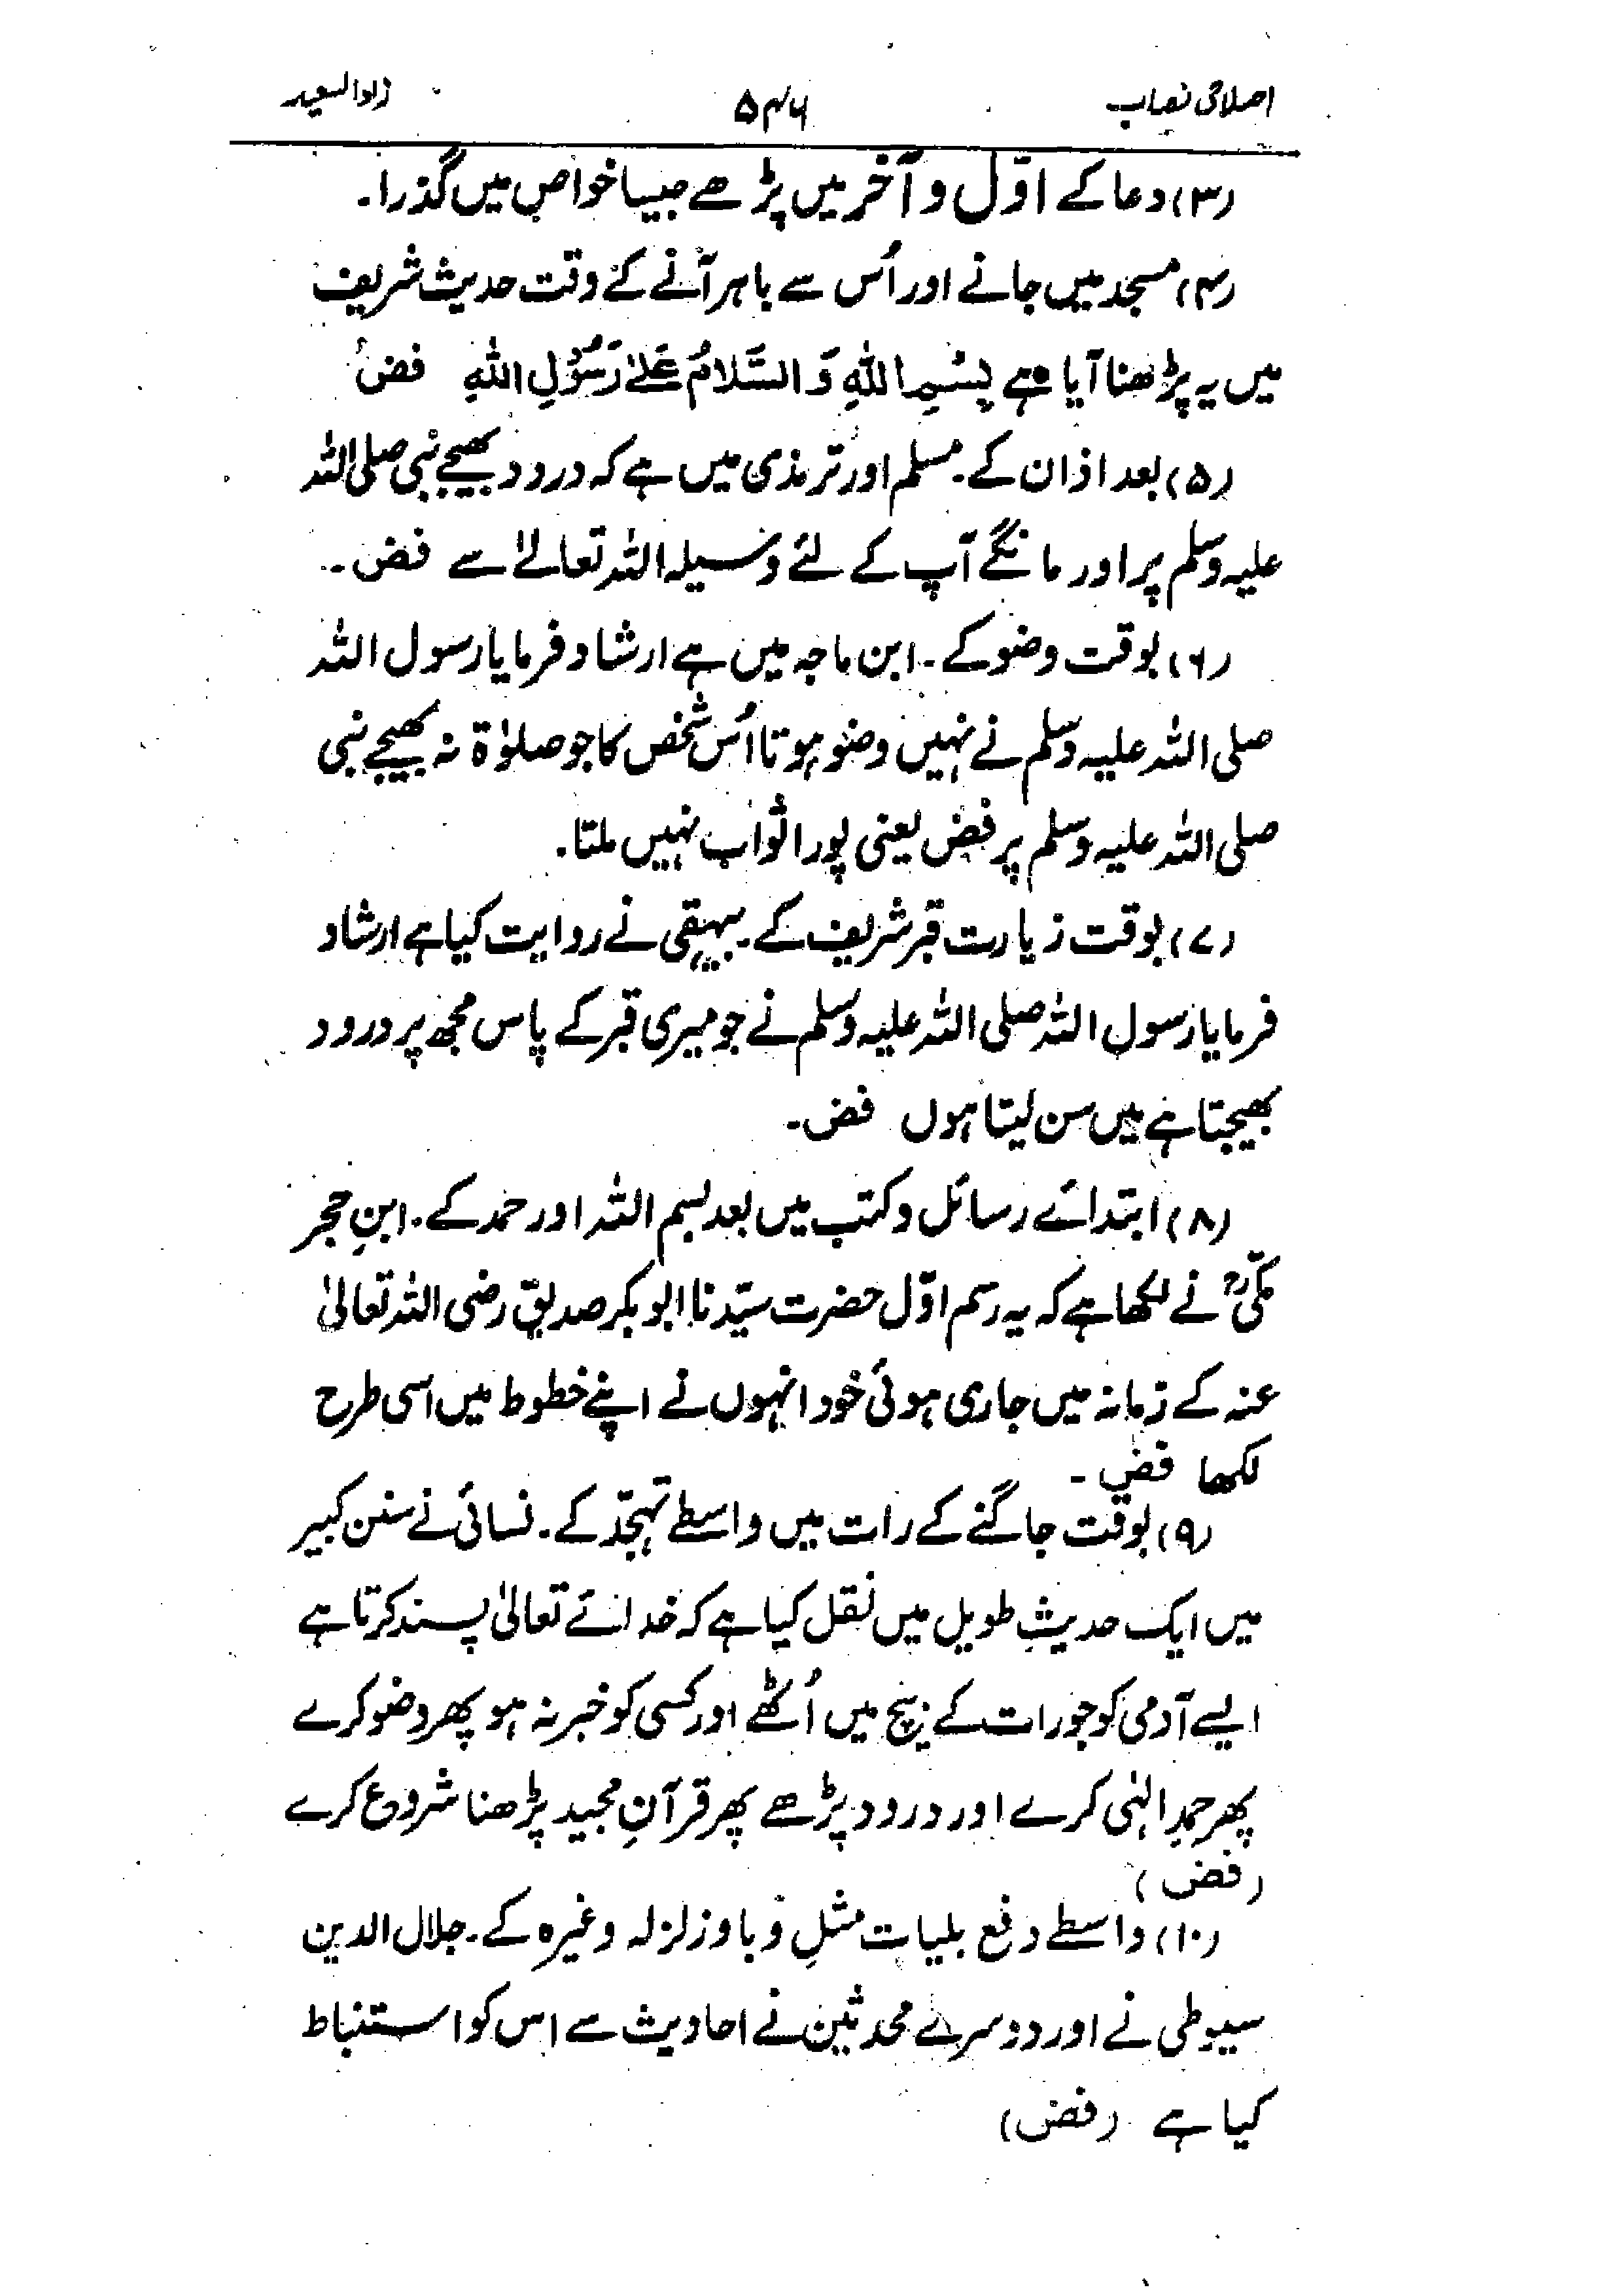 اصلاحی نصاب ۵۴۶ زاد السعید
(۳) دعا کے اوّل و آخر میں پڑھے جیسا خواص میں گذرا۔
(۴) مسجد میں جانے اور اُس سے باہر آنے کے وقت حدیث شریف
میں یہ پڑھنا آیا ہے بِسْمِ اللّٰهِ وَ السَّلَامُ عَلٰے رَسُوْلِ اللّٰهِ فض
(۵) بعد اذان کے۔ مسلم اور ترمذی میں ہے کہ درود بھیجے نبی صلی اللہ
علیہ وسلم پر اور مانگے آپ کے لئے وسیلہ اللہ تعالےٰ سے فض۔
(۶) بوقت وضو کے۔ ابن ماجہ میں ہے ارشاد فرمایا رسول اللہ
صلی اللہ علیہ وسلم نے نہیں وضو ہوتا اُس شخص کا جو صلوٰۃ نہ بھیجے نبی
صلی اللہ علیہ وسلم پر فض یعنی پورا ثواب نہیں ملتا۔
(۷) بوقت زیارت قبر شریف کے۔ بیہقی نے روایت کیا ہے ارشاد
فرمایا رسول اللہ صلی اللہ علیہ وسلم نے جو میری قبر کے پاس مجھ پر درود
بھیجتا ہے میں سن لیتا ہوں فض۔
(۸) ابتدائے رسائل و کتب میں بعد بسم اللہ اور حمد کے۔ ابنِ حجر
مکّیؒ نے لکھا ہے کہ یہ رسم اوّل حضرت سیّدنا ابوبکر صدیق رضی اللہ تعالیٰ
عنہ کے زمانہ میں جاری ہوئی خود انہوں نے اپنے خطوط میں اسی طرح
لکھا فض۔
(۹) بوقت جاگنے کے رات میں واسطے تہجّد کے۔ نسائی نے سنن کبیر
میں ایک حدیثِ طویل میں نقل کیا ہے کہ خدائے تعالیٰ پسند کرتا ہے
ایسے آدمی کو جو رات کے بیچ میں اُٹھے اور کسی کو خبر نہ ہو پھر وضو کرے
پھر حمدِ الٰہی کرے اور درود پڑھے پھر قرآنِ مجید پڑھنا شروع کرے
(فض)
(۱۰) واسطے دفع بلیات مثلِ وبا و زلزلہ وغیرہ کے۔ جلال الدین
سیوطی نے اور دوسرے محدثین نے احادیث سے اس کو استنباط
کیا ہے (فض)